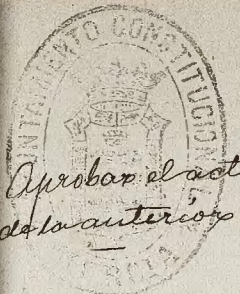 AYUNTAMIENTO CONSTITUCIONAL
MURCIA
Aprobar el act
de la anterior